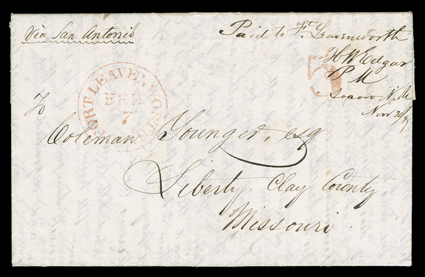 Via San Antonio
Paid to Ft. Leavenworth
H W Edgar
P M
N. M.
Nov
FORT LEAVENWORTH
7
5
To
Coleman Younger, esq
Liberty, Clay County
Missouri